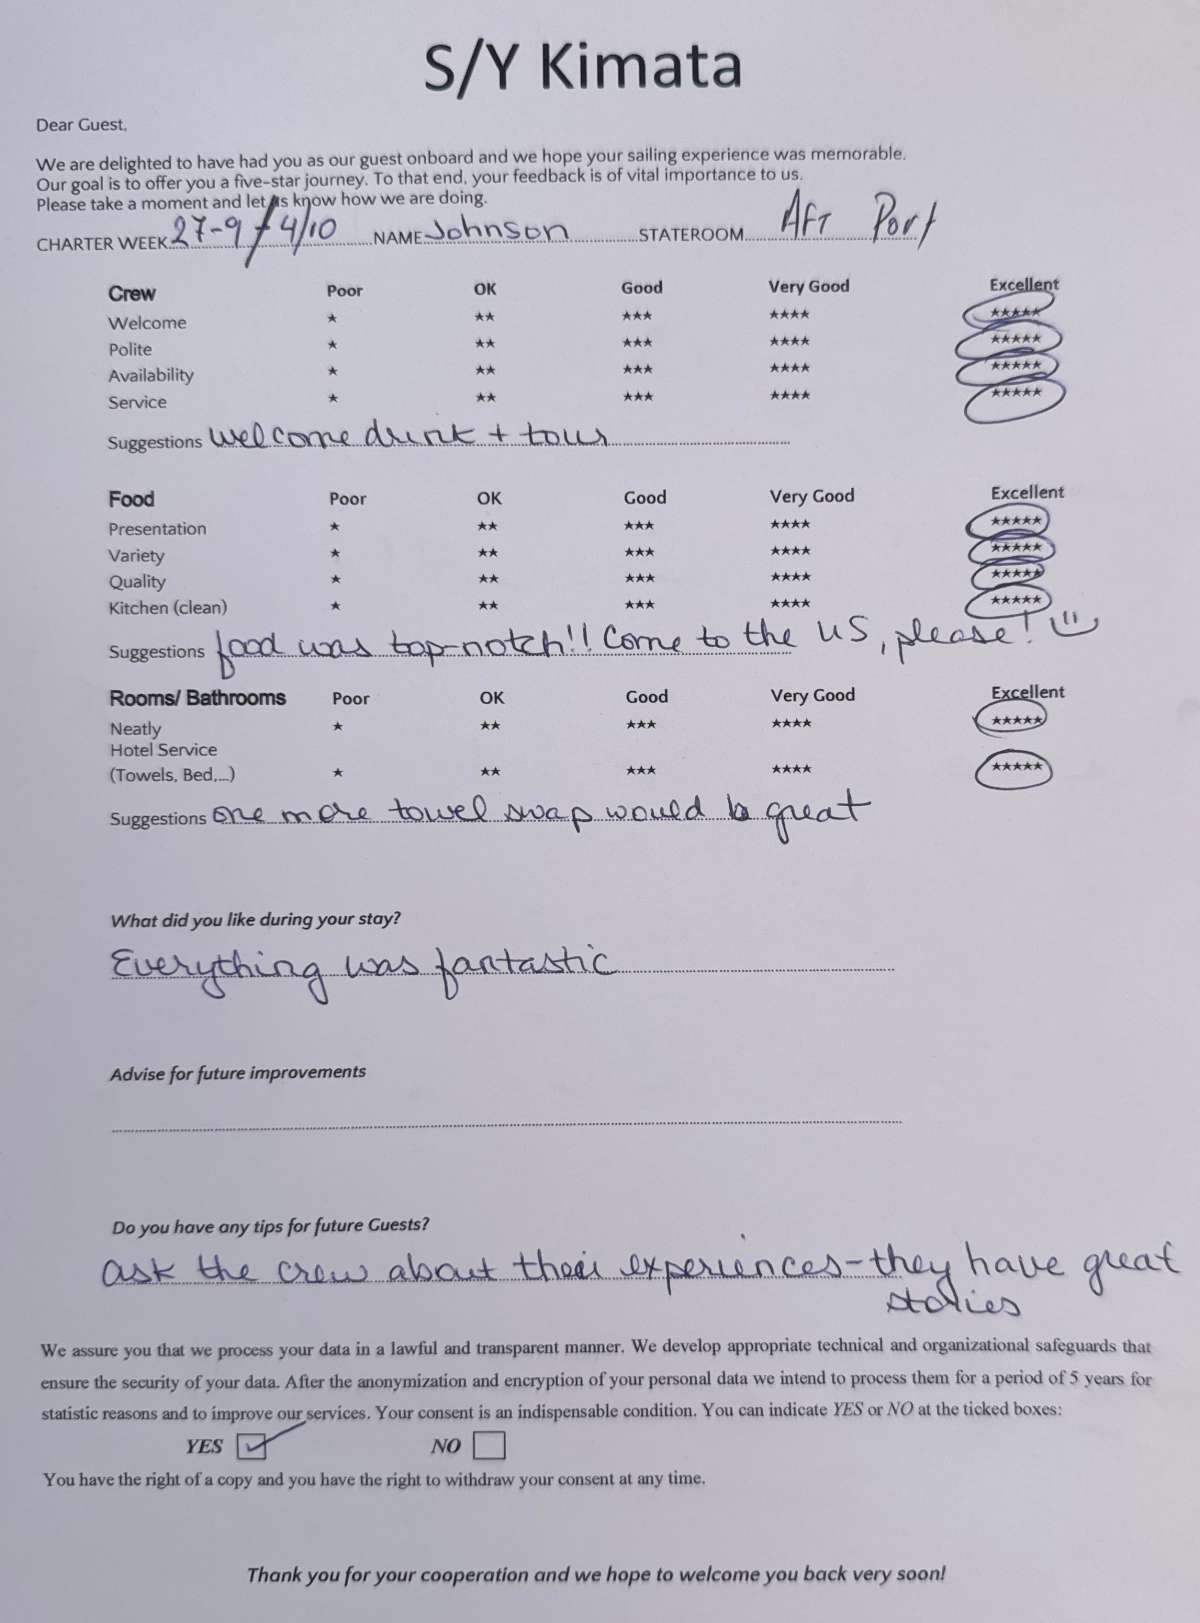 S/Y Kimata
Dear Guest,
We are delighted to have had you as our guest onboard and we hope your sailing experience was memorable.
Our goal is to offer you a five-star journey. To that end, your feedback is of vital importance to us.
Please take a moment and let us know how we are doing.
CHARTER WEEK 27-9 / 4/10 NAME Johnson STATEROOM Aft Port
Crew Poor OK Good Very Good Excellent
Welcome ★ ★★ ★★★ ★★★★ ★★★★★
Polite ★ ★★ ★★★ ★★★★ ★★★★★
Availability ★ ★★ ★★★ ★★★★ ★★★★★
Service ★ ★★ ★★★ ★★★★ ★★★★★
Suggestions welcome drink + tour
Food Poor OK Good Very Good Excellent
Presentation ★ ★★ ★★★ ★★★★ ★★★★★
Variety ★ ★★ ★★★ ★★★★ ★★★★★
Quality ★ ★★ ★★★ ★★★★ ★★★★★
Kitchen (clean) ★ ★★ ★★★ ★★★★ ★★★★★
Suggestions food was top-notch!! Come to the US, please!
Rooms/ Bathrooms Poor OK Good Very Good Excellent
Neatly ★ ★★ ★★★ ★★★★ ★★★★★
Hotel Service
(Towels, Bed,...) ★ ★★ ★★★ ★★★★ ★★★★★
Suggestions one more towel swap would b great
What did you like during your stay?
Everything was fantastic
Advise for future improvements
Do you have any tips for future Guests?
ask the crew about their experiences-they have great
stories
We assure you that we process your data in a lawful and transparent manner. We develop appropriate technical and organizational safeguards that
ensure the security of your data. After the anonymization and encryption of your personal data we intend to process them for a period of 5 years for
statistic reasons and to improve our services. Your consent is an indispensable condition. You can indicate YES or NO at the ticked boxes:
YES NO
You have the right of a copy and you have the right to withdraw your consent at any time.
Thank you for your cooperation and we hope to welcome you back very soon!